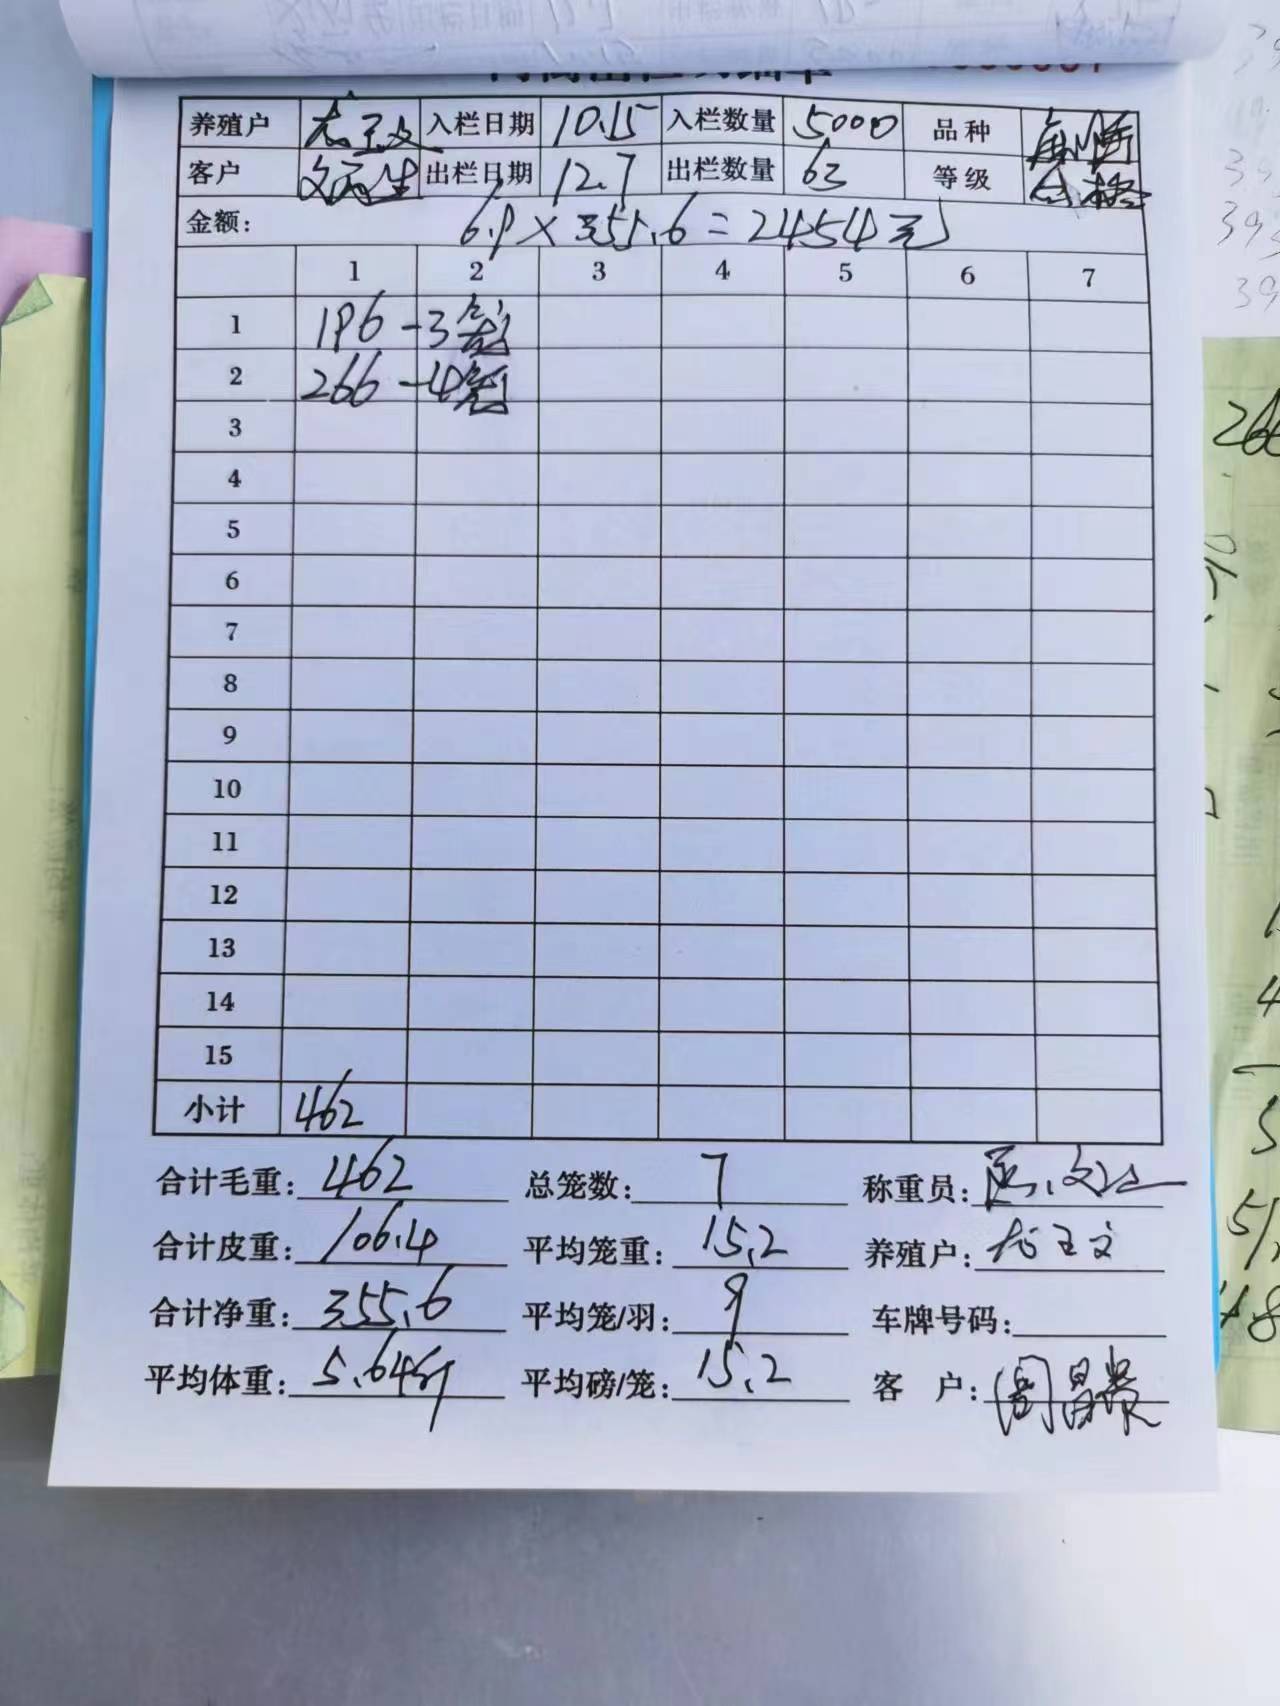 养殖户 龙王文 入栏日期 10.15 入栏数量 5000 品种
客户 出栏日期 12.7 出栏数量 63 等级 合格
金额: 6.9×355.6=2454元
1 2 3 4 5 6 7
1 196-3笼
2 266-4笼
3
4
5
6
7
8
9
10
11
12
13
14
15
小计 462
合计毛重: 462 总笼数: 7 称重员:
合计皮重: 106.4 平均笼重: 15.2 养殖户: 龙王文
合计净重: 355.6 平均笼/羽: 9 车牌号码:
平均体重: 5.64斤 平均磅/笼: 15.2 客户: 周昌贵